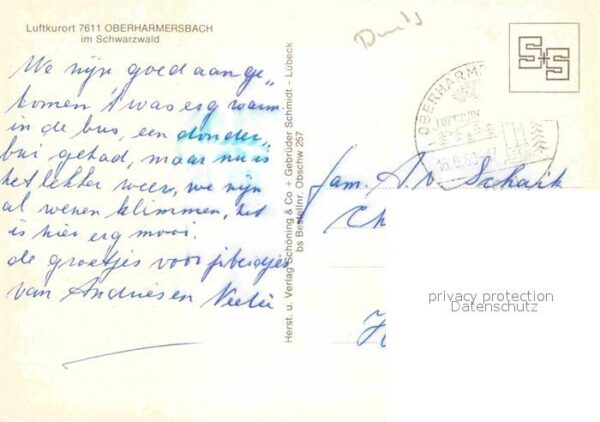 Luftkurort 7611 OBERHARMERSBACH
im Schwarzwald
We zijn goed aange„
komen 't was erg warm
in de bus, een donder„
bui gehad, maar nu is
het lekker weer, we zijn
al wezen klimmen, het
is hier erg mooi.
de groetjes voor jibeidjes
van Andries en
Herst. u. Verlag Schöning & Co + Gebrüder Schmidt - Lübeck
bs Bestellnr. Obschw 257
S+S
OBERHARMS
LUFTKURORT
fam. A. v Schaik
privacy protection
Datenschutz